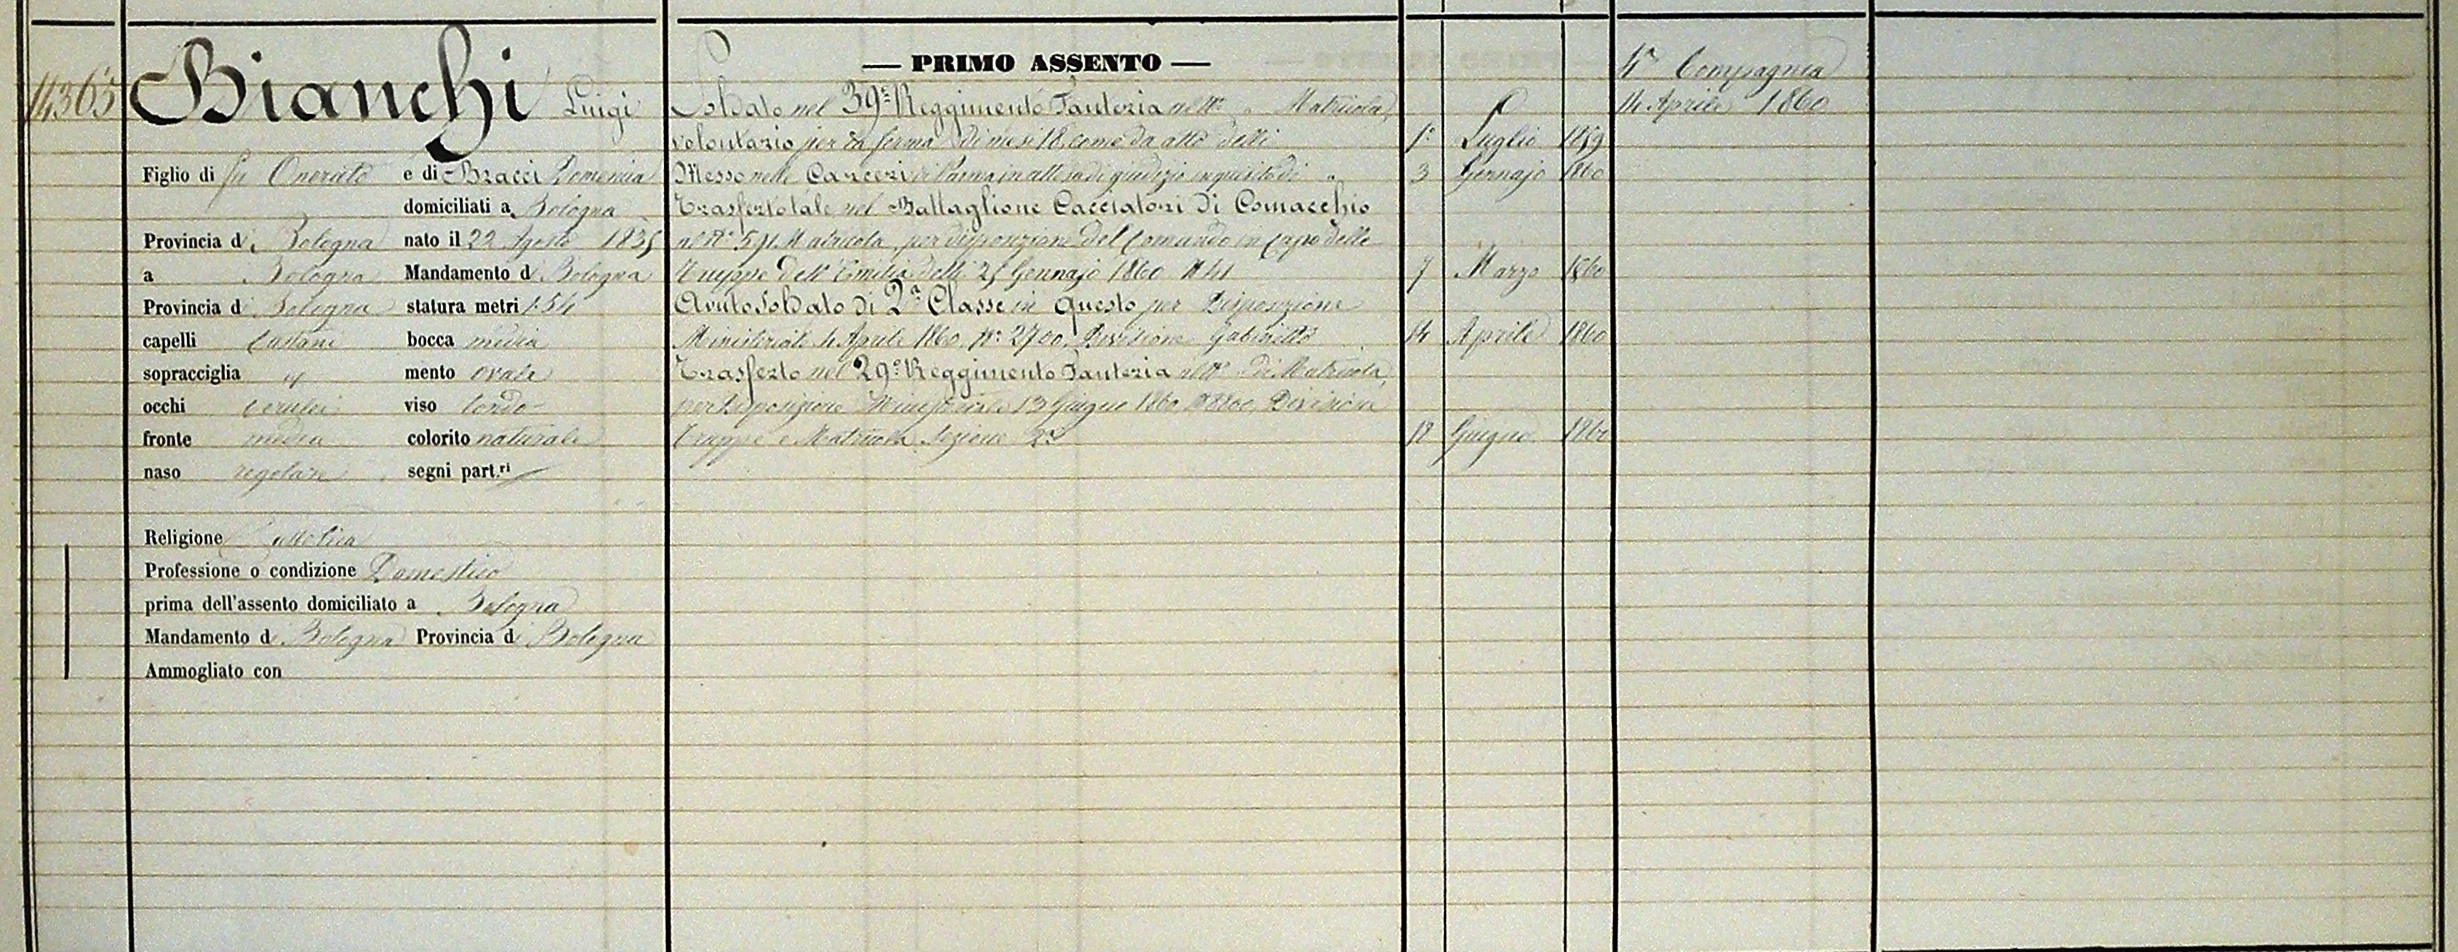 14363
Bianchi Luigi
Figlio di fu Onorato e di Bracci Domenica
domiciliati a Bologna
Provincia di Bologna nato il 22 Agosto 1835
a Bologna Mandamento di Bologna
Provincia di Bologna statura metri 1.54
capelli castani bocca media
sopracciglia " mento ovale
occhi cerulei viso tondo
fronte media colorito naturale
naso regolare segni part.ri
Religione Cattolica
Professione o condizione Domestico
prima dell'assento domiciliato a Bologna
Mandamento di Bologna Provincia di Bologna
Ammogliato con
— PRIMO ASSENTO —
Soldato nel 39° Reggimento Fanteria al N° " Matricola,
volontario per la ferma di mesi 18, come da atto delli 1° Luglio 1859
Messo nelle Carceri di Parma in attesa di giudizio inquisito di " 3 Gennajo 1860
Trasferto tale nel Battaglione Cacciatori di Comacchio
al N° 591 Matricola, per disposizione del Comando in Capo delle
Truppe dell'Emilia delli 25 Gennajo 1860 N 41 7 Marzo 1860
Avuto Soldato di 2a Classe in questo per Disposizione
Ministeriale 4 Aprile 1860, N° 2700, Divisione Gabinetto 14 Aprile 1860
Trasferto nel 29° Reggimento Fanteria al N° di Matricola,
per Disposizione Ministeriale 13 Giugno 1860 N 8800, Divisione
Truppe e Matricola Sezione 2a 18 Giugno 1860
4a Compagnia
14 Aprile 1860